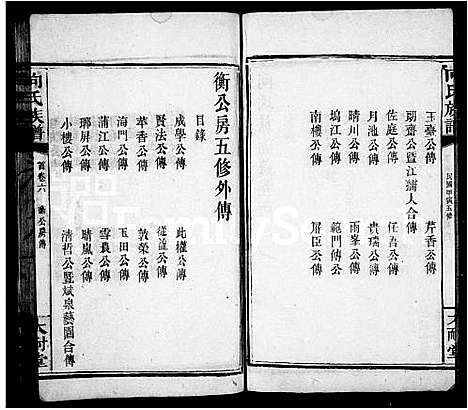 向氏族譜
民國甲寅五修
大耐堂
衡公房五修外傳
目錄
成學公傳 此權公傳
賢法公傳 從遊公傳
華香公傳 敦榮公傳
海門公傳 玉田公傳
蒲江公傳 雪農公傳
瑯屏公傳 晴嵐公傳
小樓公傳 清哲公暨斌泉藝圃合傳
向氏族譜
首卷六 衡公房傳
大耐堂
玉齋公傳 芹香公傳
朗齋公暨江蒲人合傳
佐庭公傳 任吾公傳
月池公傳 貴瑞公傳
晴川公傳 雨峯公傳
塢江公傳 範門公傳
南樓公傳 屏臣公傳
FamilySearch